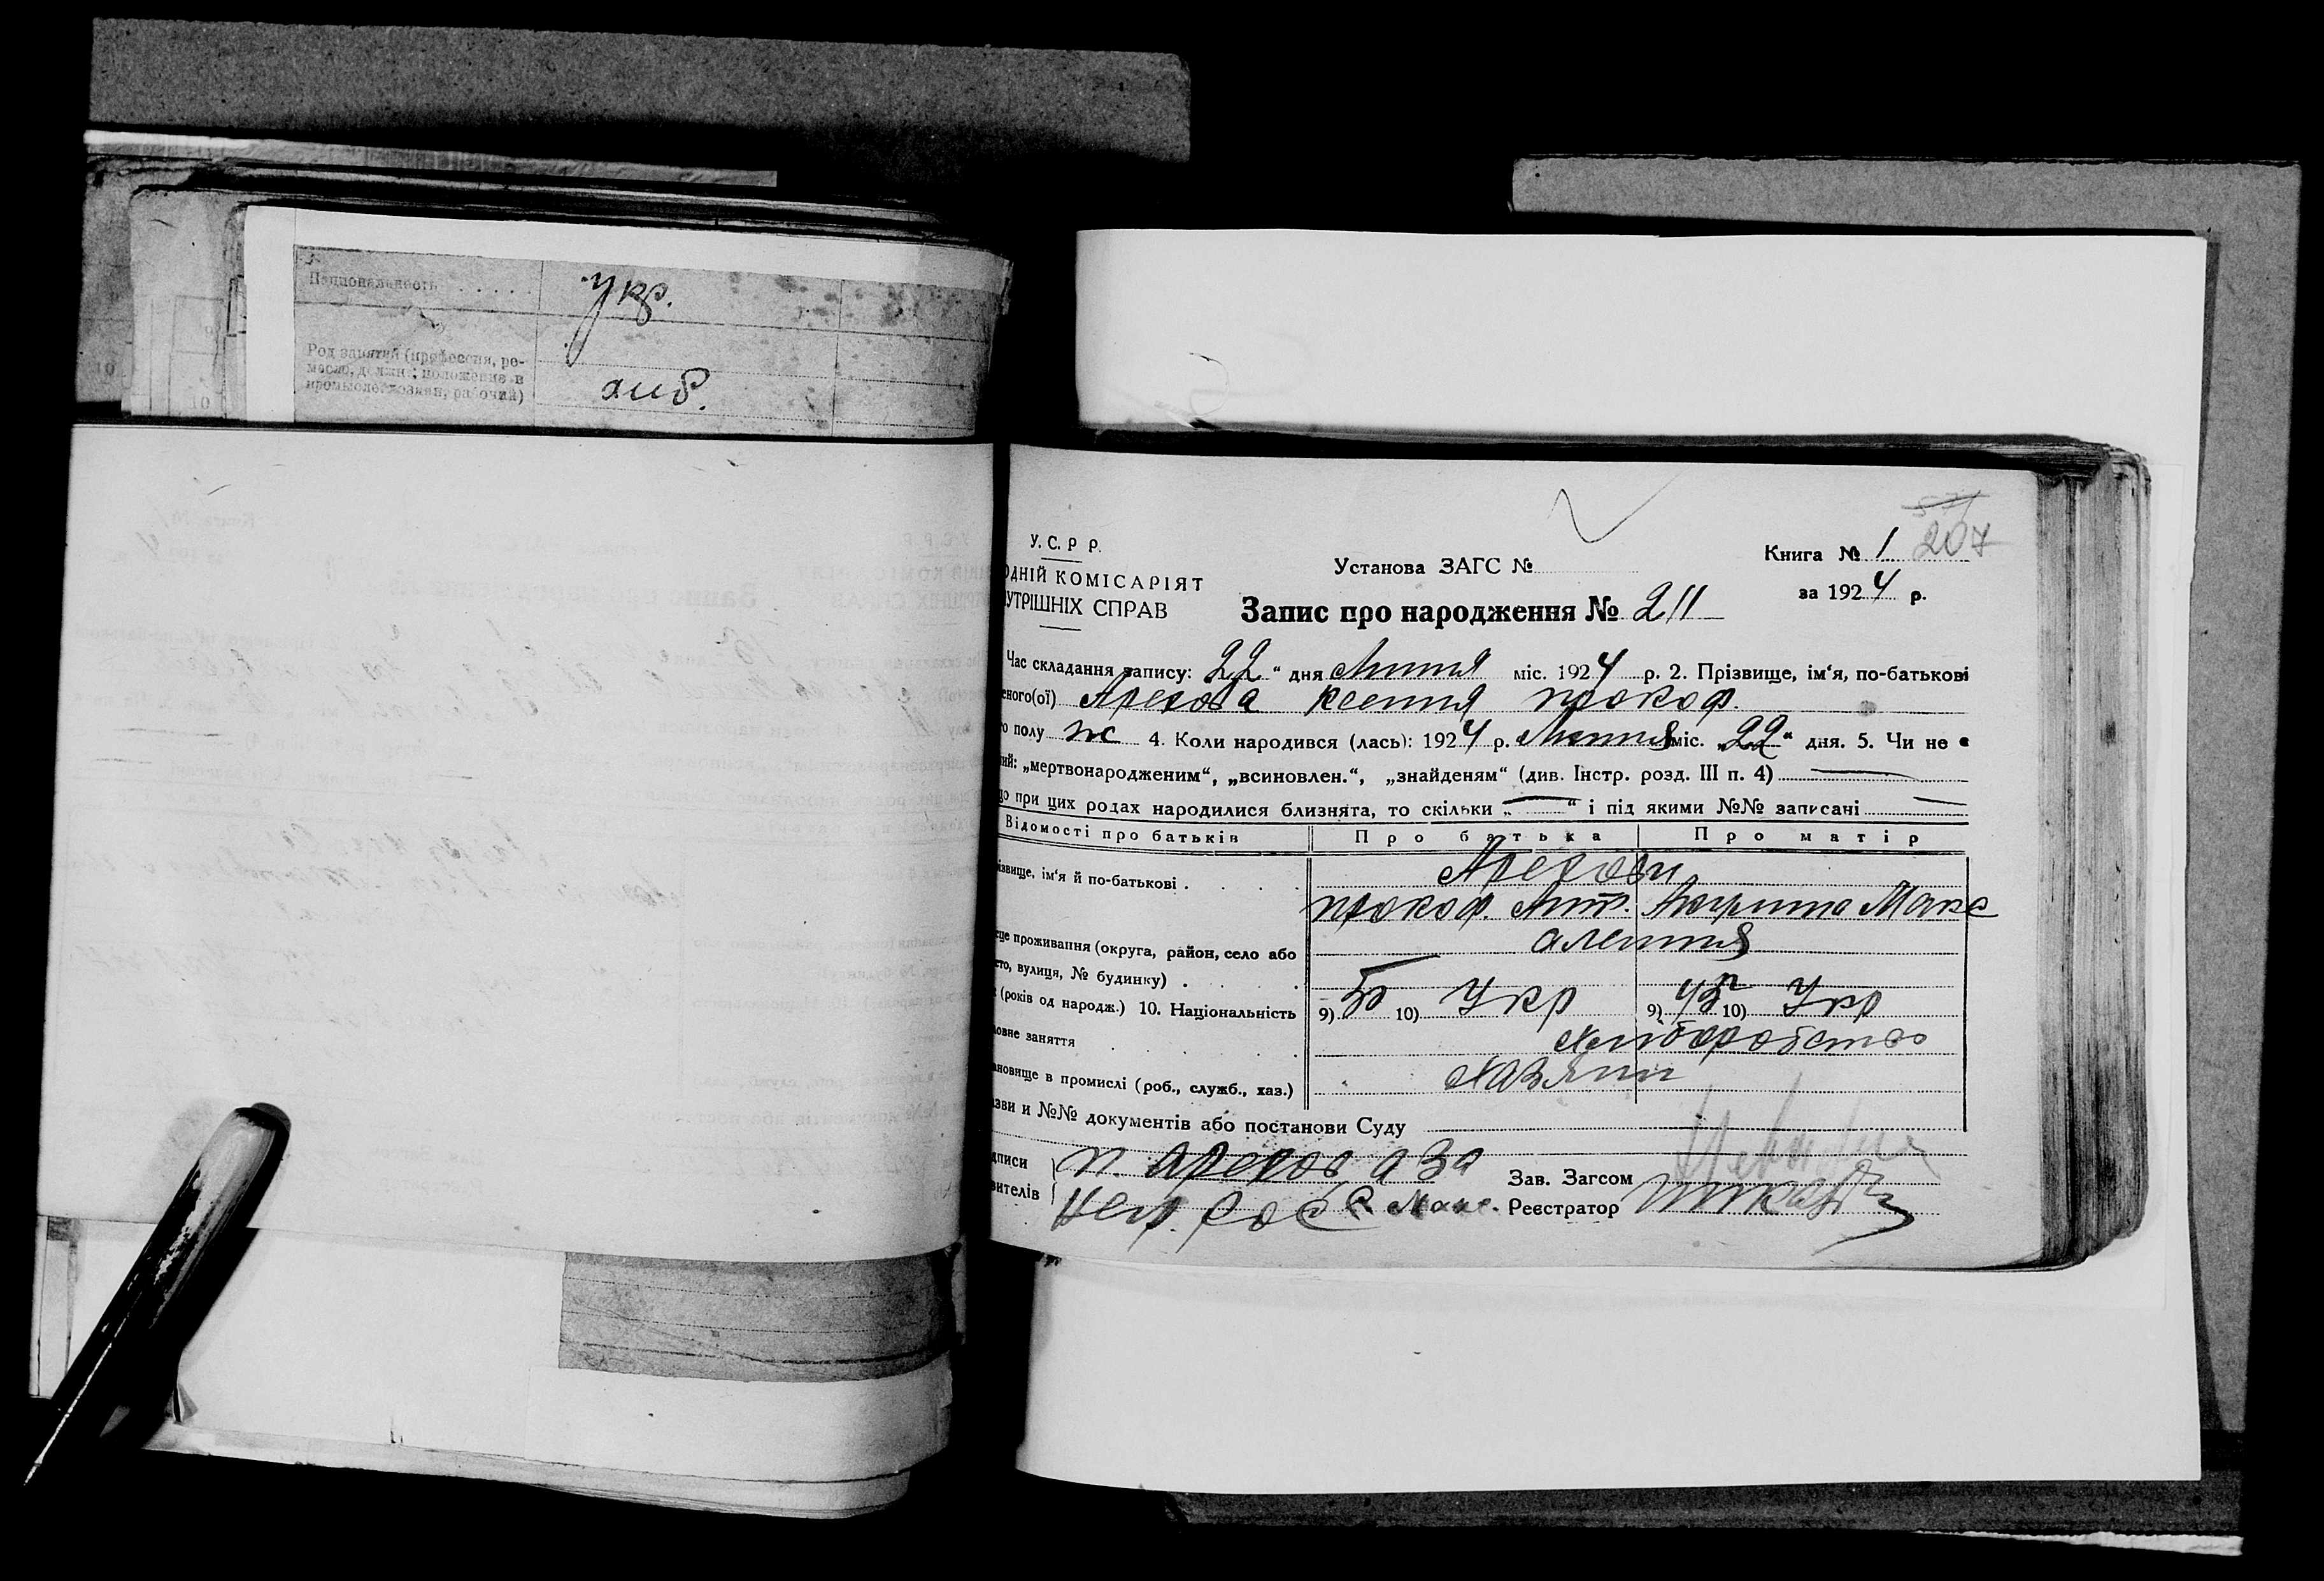 Национальность . . . . . укр.
Род занятий (профессия, ре-
месло, должн.; положение в
промысле: хозяин, рабочий) хиб.
10
10
207
У. С. Р Р.
Книга № 1
ОДНІЙ КОМІСАРІЯТ
Установа ЗАГС №
за 1924 р.
УТРІШНІХ СПРАВ
Запис про народження № 211
Час складання запису: 22 “ дня Липня міс. 1924 р. 2. Прізвище, ім‘я, по-батькові
еного(ої) Арехова Ксения прокоф.
о полу ж 4. Коли народився (лась): 1924 р. Липня міс. „22“ дня. 5. Чи не є
ий: „мертвонародженим“, „всиновлен.“, „знайденям“ (див. Інстр. розд. III п. 4) —
що при цих родах народилися близнята, то скільки „ — “ і під якими №№ записані —
Відомості про батьків Про батька Про матір
ізвище, ім‘я й по-батькові . . . . Арехови
прокоф. Ант. Макс
це проживання (округа, район, село або
сто, вулиця, № будинку) . .
(років од народж.) 10. Національність 9) 50 10) Укр 9) 43 10) Укр
овне заняття . . . . Хліборобство
ановище в промислі (роб., служб., хаз.) Хазяин
зви и №№ документів або постанови Суду
дписи п. арехов а за
Зав. Загсом
вителів
Реєстратор